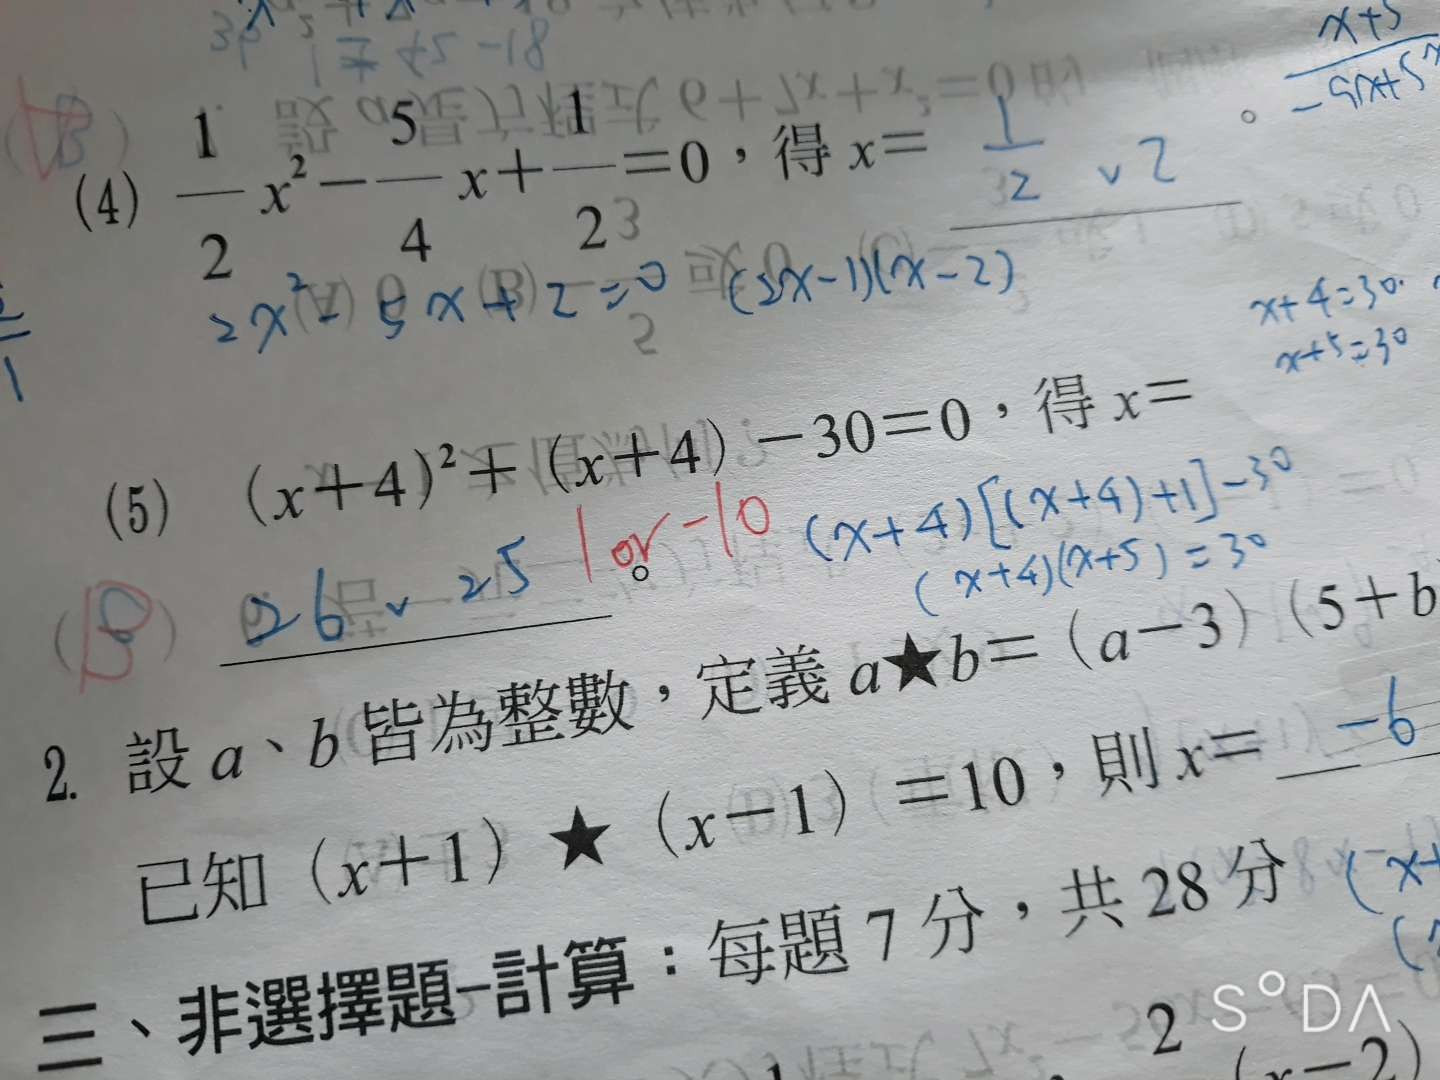 1 7 +5 -18
x+5
(4) 1/2 x² − 5/4 x + 1/2 =0，得 x= 1/2 v 2 。
2x² - 5x + 2 = 0 (2x-1)(x-2)
x+4=30
x+5=30
(5) (x+4)²+(x+4)−30=0，得 x=
(x+4)[(x+4)+1]-30
26 v 25 1 or -10 。
(x+4)(x+5) = 30
2. 設 a、b 皆為整數，定義 a★b=(a−3)(5+b
已知 (x+1) ★ (x−1) =10，則 x= -6
三、非選擇題-計算：每題 7 分，共 28 分
2
(x−2)
S°DA